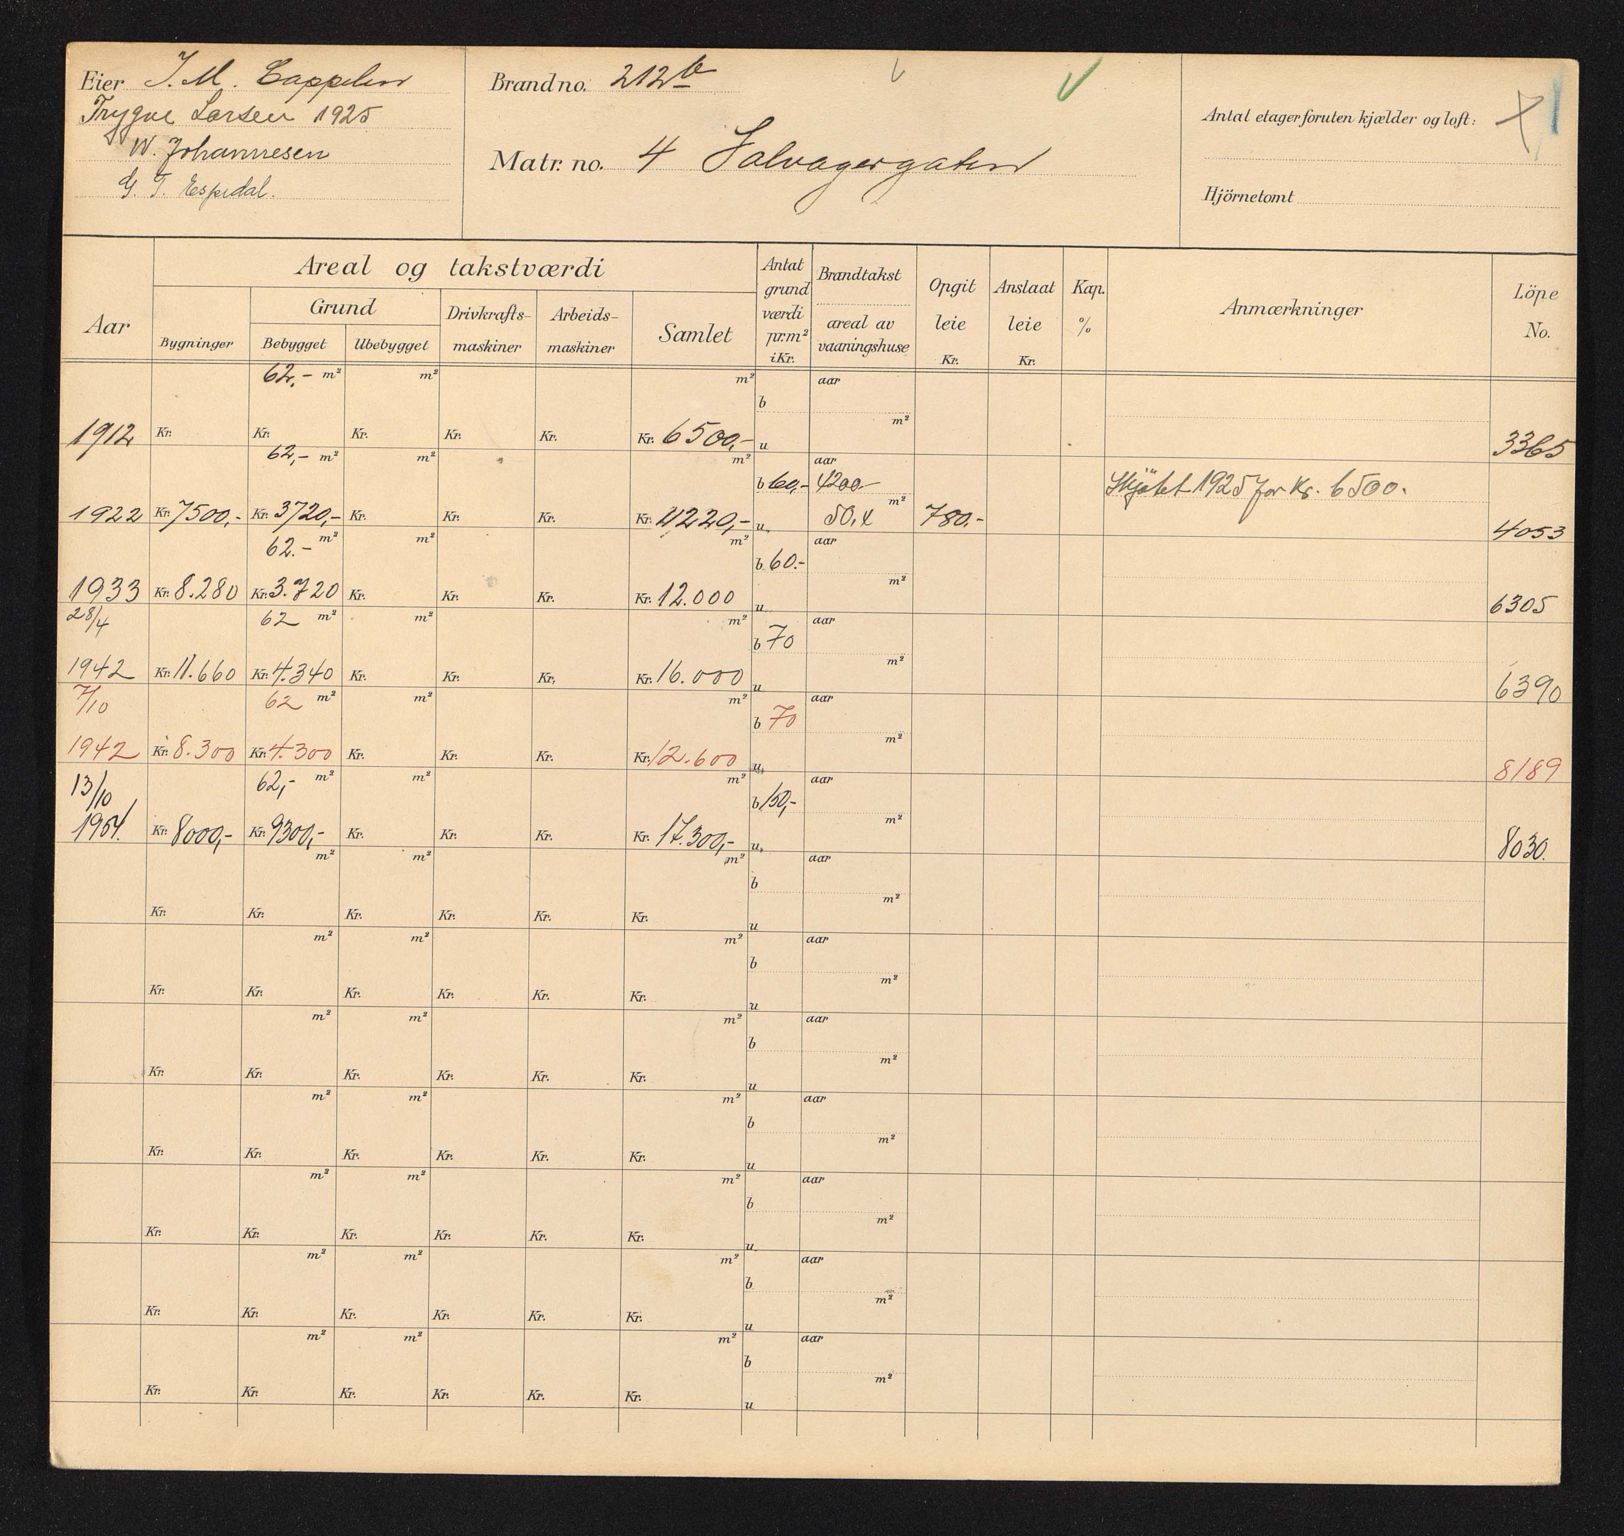 Eier J. M. Cappelen
Trygve Larsen 1925
W. Johannesen
G. T. Espedal.
Brandno. 212b
Matr. no. 4 Salvagergaten
Antal etager foruten kjælder og loft:
Hjörnetomt
Aar
Areal og takstværdi
Bygninger
Grund
Bebygget
Ubebygget
Drivkrafts-
maskiner
Arbeids-
maskiner
Samlet
Antat
grund
værdi
pr. m²
i Kr.
Brandtakst
areal av
vaaningshuse
Opgit
leie
Kr.
Anslaat
leie
Kr.
Kap.
%
Anmærkninger
Löpe
No.
62,- m² m² m² aar
b
m²
1912 Kr. Kr. Kr. Kr. Kr. Kr. 6500,- u 3365
62,- m² m² m² aar
b 60,- 4200 Skjötet 1925 for Kr. 6500.
m²
1922 Kr. 7500,- Kr. 3720,- Kr. Kr. Kr. Kr. 11220,- u 50,4 780.- 4053
62.- m² m² m² aar
b 60.-
m²
1933 Kr. 8.280 Kr. 3.720 Kr. Kr. Kr. Kr. 12.000 u 6305
28/4 62 m² m² m² aar
b 70
m²
1942 Kr. 11.660 Kr. 4.340 Kr. Kr. Kr. Kr. 16.000 u 6390
7/10 62 m² m² m² aar
b 70
m²
1942 Kr. 8.300 Kr. 4.300 Kr. Kr. Kr. Kr. 12.600 u 8189
13/10 62,- m² m² m² aar
b 150,-
m²
1954. Kr. 8000,- Kr. 9300,- Kr. Kr. Kr. Kr. 17.300,- u 8030.
m² m² m² aar
b
m²
Kr. Kr. Kr. Kr. Kr. Kr. u
m² m² m² aar
b
m²
Kr. Kr. Kr. Kr. Kr. Kr. u
m² m² m² aar
b
m²
Kr. Kr. Kr. Kr. Kr. Kr. u
m² m² m² aar
b
m²
Kr. Kr. Kr. Kr. Kr. Kr. u
m² m² m² aar
b
m²
Kr. Kr. Kr. Kr. Kr. Kr. u
m² m² m² aar
b
m²
Kr. Kr. Kr. Kr. Kr. Kr. u
m² m² m² aar
b
m²
Kr. Kr. Kr. Kr. Kr. Kr. u